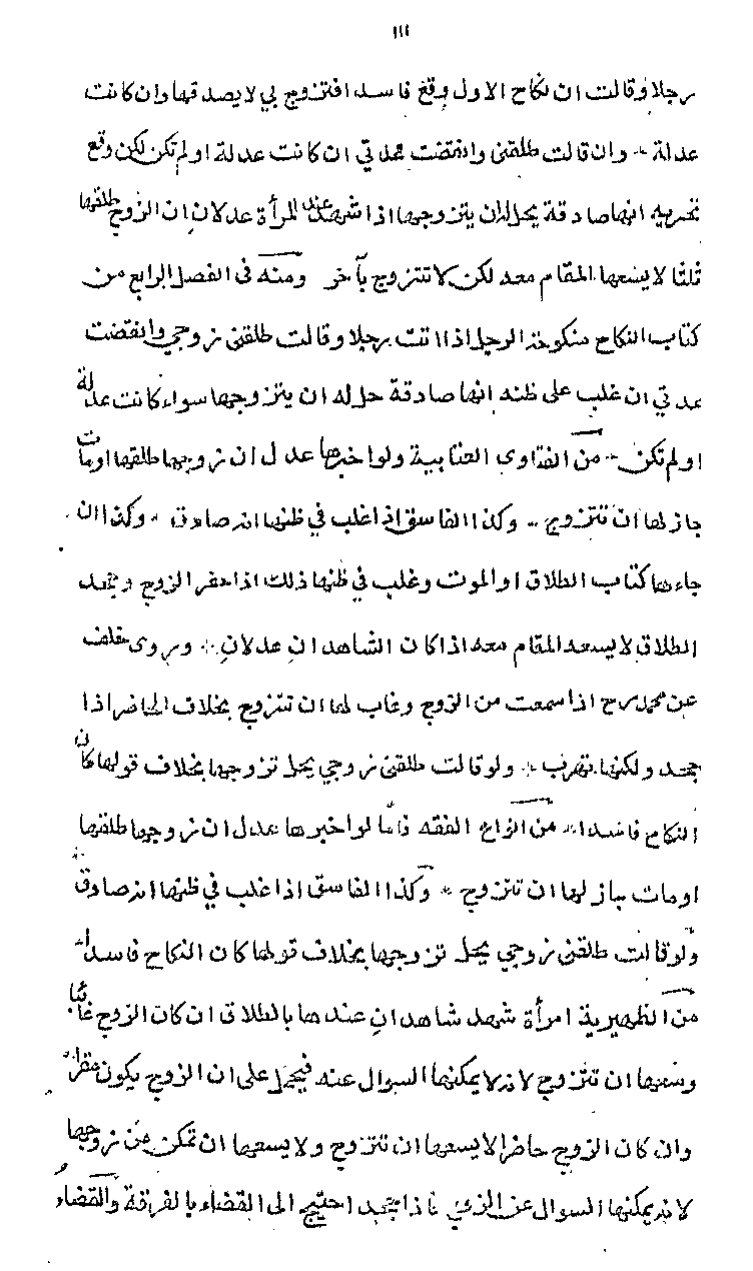 ١١١
رجلا وقالت ان نكاح الاول وقع فاسدا فتزوج بي لا يصدقها وان كانت
عدلة وان قالت طلقنى وانقضت عدتي ان كانت عدلة او لم تكن لكن وقع
تحريه انها صادقة يحل له ان يتزوجها اذا شهد عند المرأة عدلان ان الزوج طلقها
ثلثا لا يسعها المقام معه لكن لا تتزوج بآخر ومنه فى الفصل الرابع من
كتاب النكاح منكوحة الرجل اذا اتت رجلا وقالت طلقنى زوجي وانقضت
عدتي ان غلب على ظنه انها صادقة حل له ان يتزوجها سواء كانت عدلة
او لم تكن من الفتاوى العتابية ولو اخبرها عدل ان زوجها طلقها او مات
جاز لها ان تتزوج وكذا الفاسق اذا غلب في ظنها انه صادق وكذا ان
جاءها كتاب الطلاق او الموت وغلب في ظنها ذلك اذا حضر الزوج وجحد
الطلاق لا يسعه المقام معه اذا كان الشاهدان عدلان وروى خلف
عن محمد رح اذا سمعت من الزوج وغاب لها ان تتزوج بخلاف الحاضر اذا
جحد ولكنها تهرب ولو قالت طلقنى زوجي يحل تزوجها بخلاف قولها كان
النكاح فاسدا من انواع الفقه فاما لو اخبرها عدل ان زوجها طلقها
او مات جاز لها ان تتزوج وكذا الفاسق اذا غلب في ظنها انه صادق
ولو قالت طلقنى زوجي يحل تزوجها بخلاف قولها كان النكاح فاسدا
من الظهيرية امرأة شهد شاهدان عندها بالطلاق ان كان الزوج غائبا
وسعها ان تتزوج لانه لا يمكنها السوال عنه فيحمل على ان الزوج يكون مقرا
وان كان الزوج حاضرا لا يسعها ان تتزوج ولا يسعها ان تمكن من زوجها
لانه يمكنها السوال عن الزوج فاذا جحد احتيج الى القضاء بالفرقة والقضاء